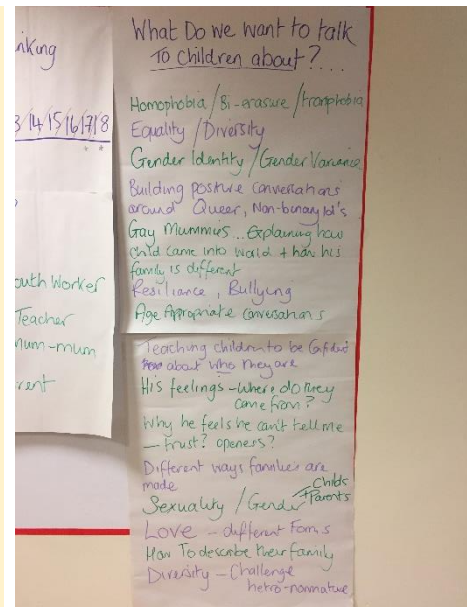 nking
3/14/15/16/17/18
outh Worker
Teacher
mum-mum
rent
What Do we want to talk
To children about?...
Homophobia/Bi-erasure/transphobia
Equality/Diversity
Gender Identity/Gender Variance
Building posture conversations
around Queer, Non-binary Id's
Gay Mummies...Explaining how
child came into world + how his
family is different
Resiliance, Bullying
Age Appropriate conversations
Teaching children to be Confident
about who they are
His feelings - where do they
come from?
Why he feels he can't tell me
- trust? openess?
Different ways families are
made
Sexuality / Gender Childs
Parents
Love - different Forms
How To describe their family
Diversity - Challenge
hetro-normative